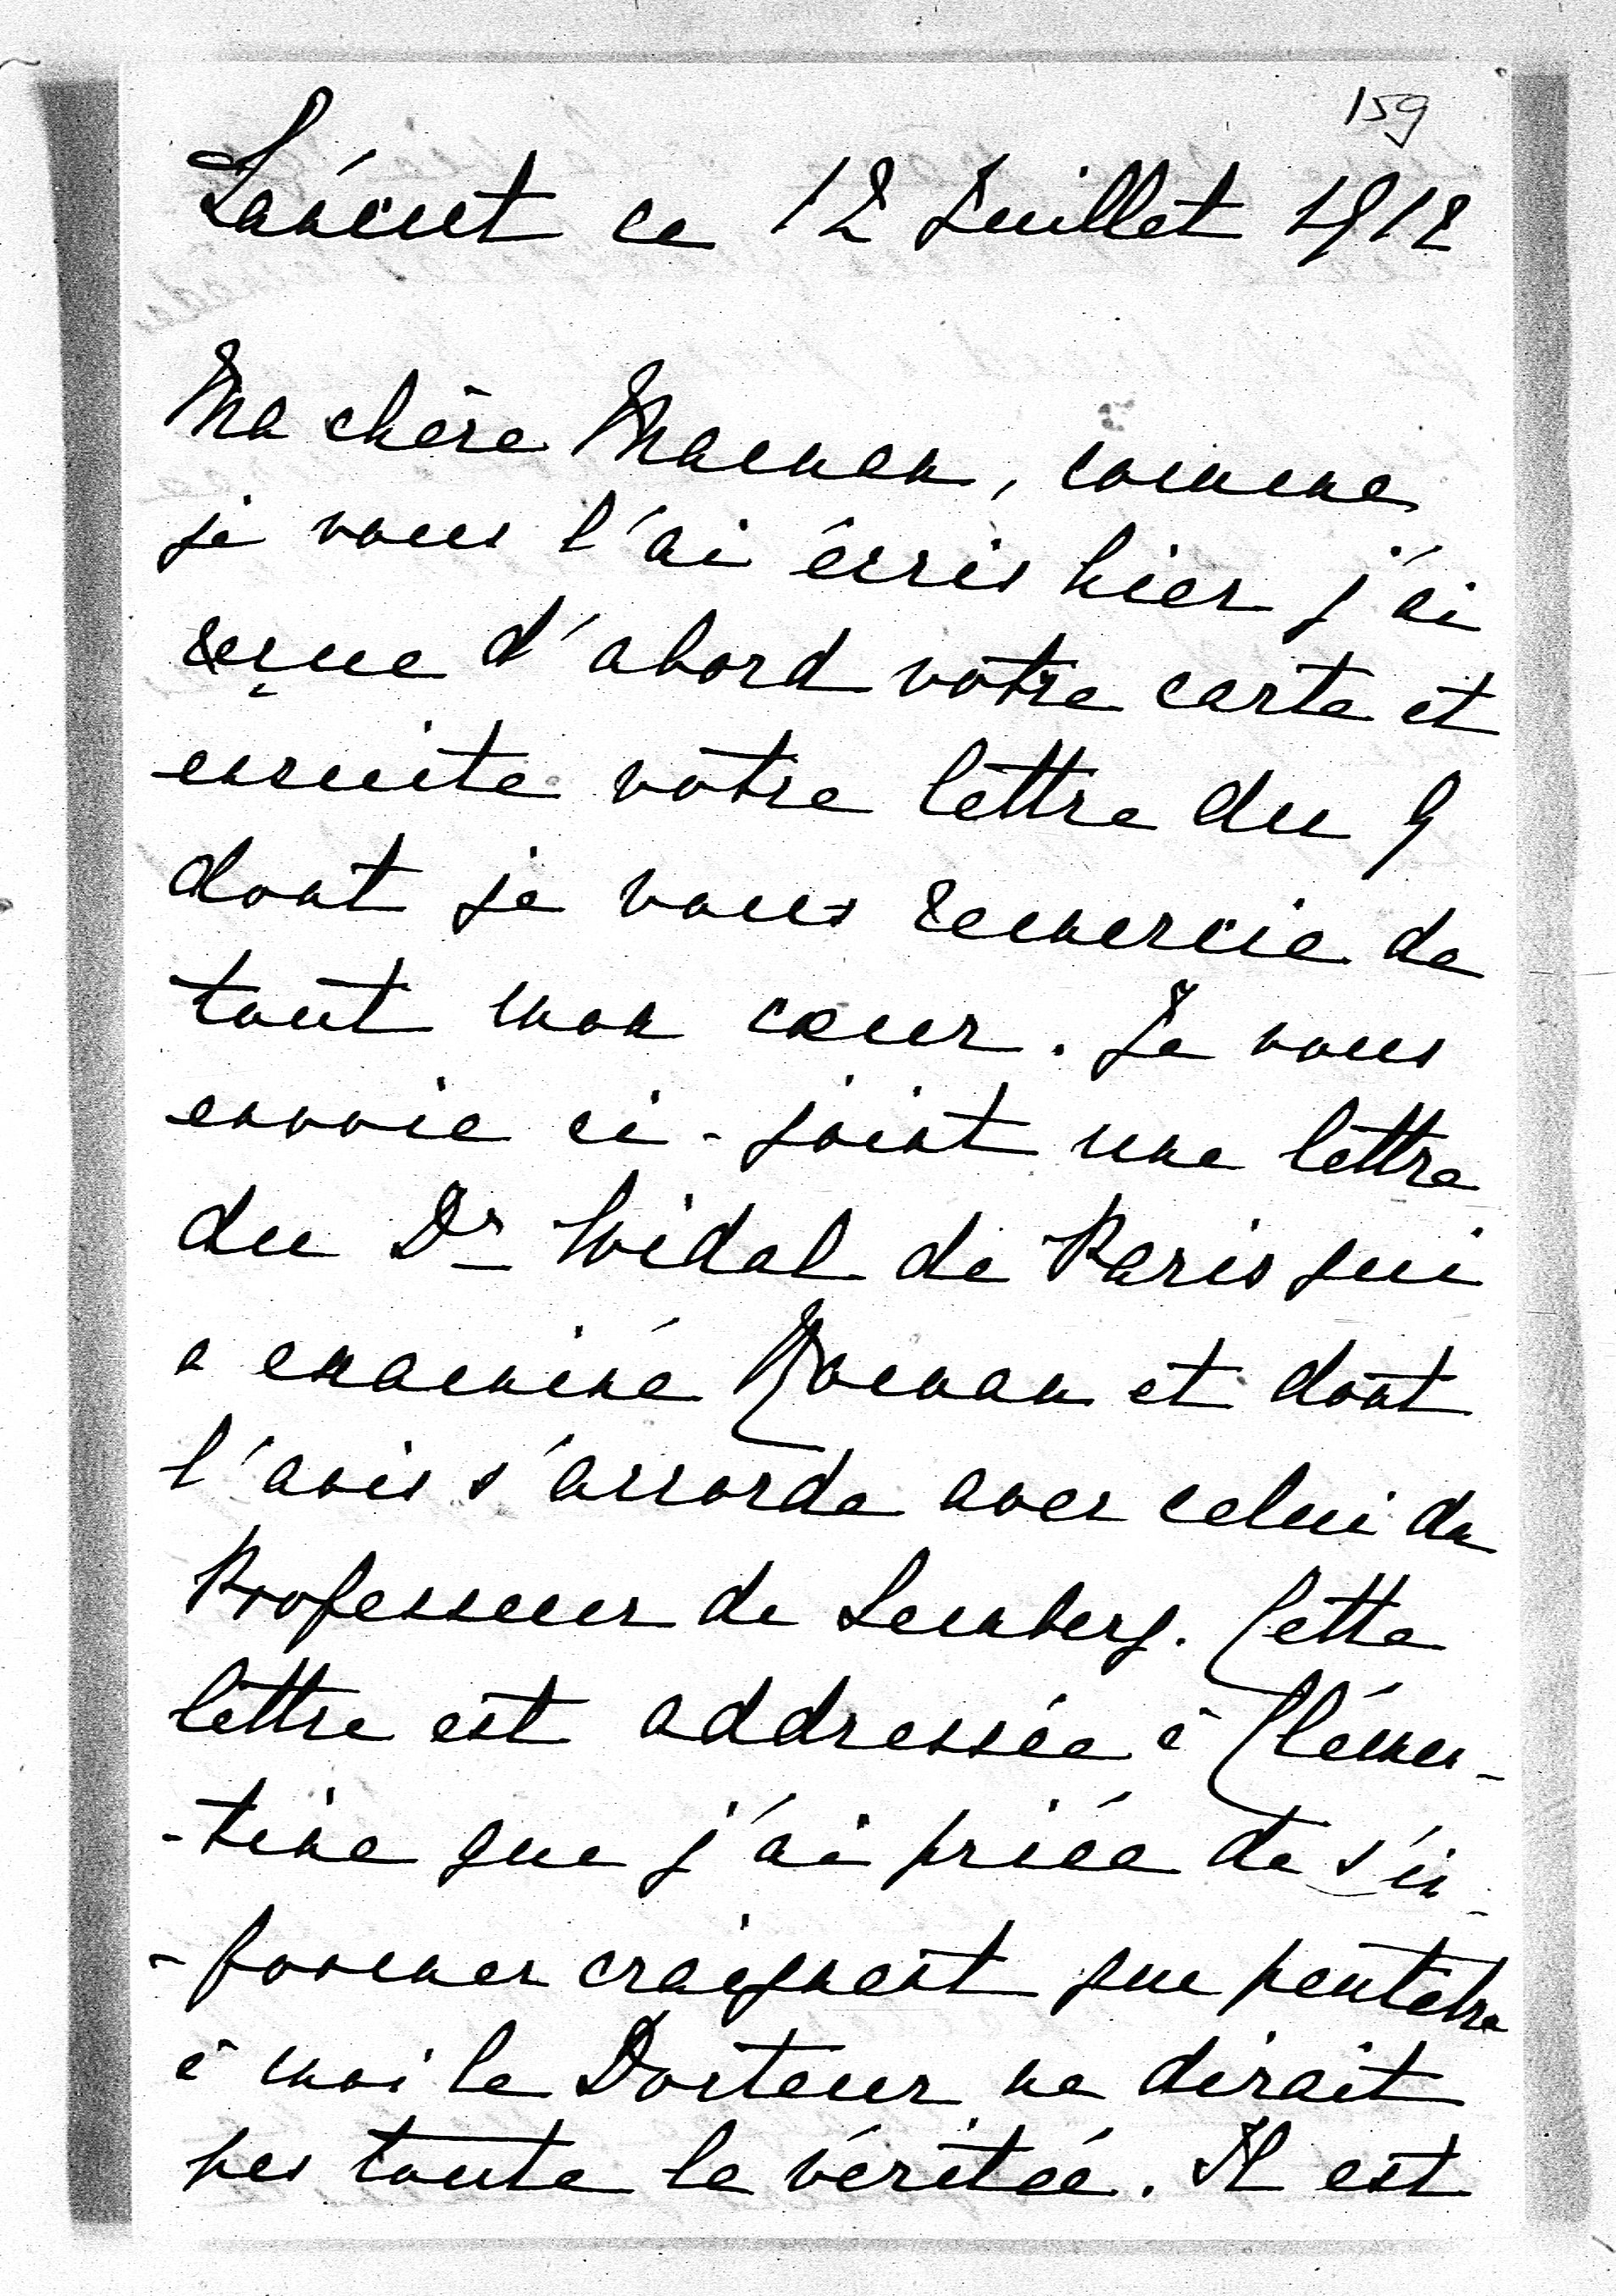 159
Łańcut ce 12 Juillet 1912
Ma chère Maman, comme
je vous l'ai écris hier j'ai
reçue d'abord vôtre carte et
ensuite vôtre lettre du 9
dont je vous remercie de
tout mon cœur. Je vous
envoie ci-joint une lettre
du Dr Widal de Paris qui
a examiné Roman et dont
l'avis s'accorde avec celui du
Professeur de Lemberg. Cette
lettre est addressée à Clémen-
-tine que j'ai priée de s'in-
-former craignant que peutetre
à moi le Docteur ne dirait
pas toute la véritée. Il est